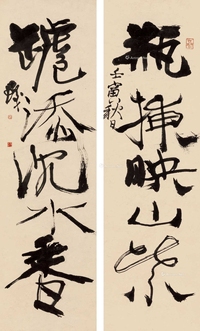 瓶插映山紫
壬寅秋日
罏添沉水香